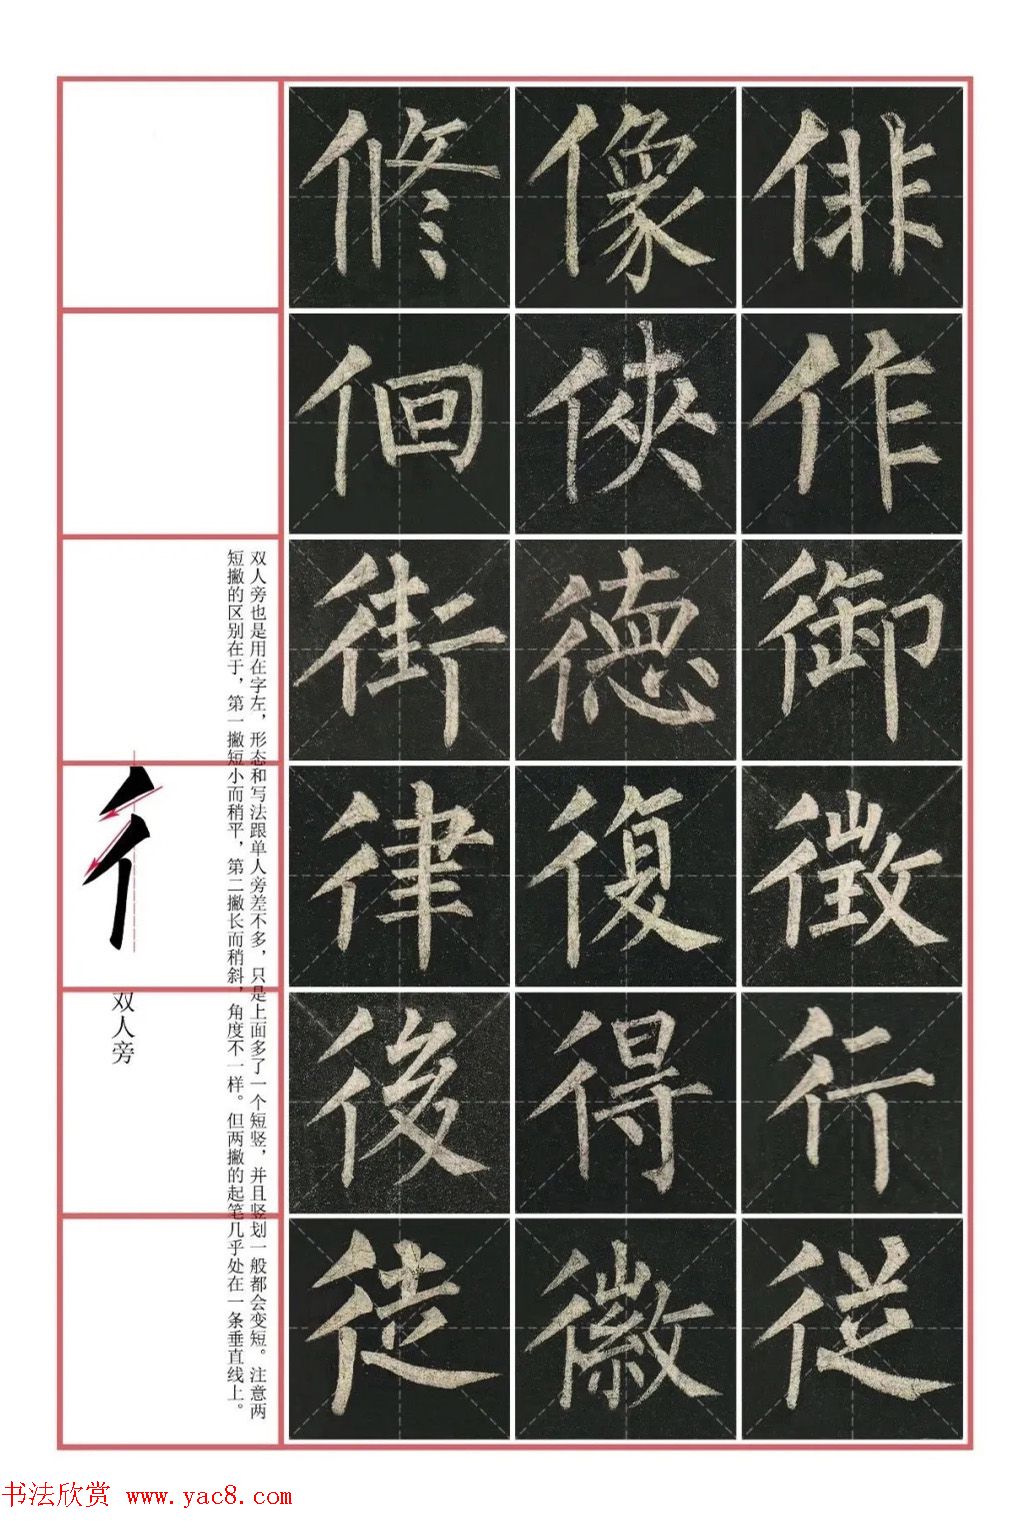 俳作御徵行従
像俠德復得徽
修佪街律後徒
双人旁也是用在字左，形态和写法跟单人旁差不多，只是上面多了一个短竖，并且竖划一般都会变短。注意两
短撇的区别在于，第一撇短小而稍平，第二撇长而稍斜，角度不一样。但两撇的起笔几乎处在一条垂直线上。
彳
双人旁
书法欣赏 www.yac8.com